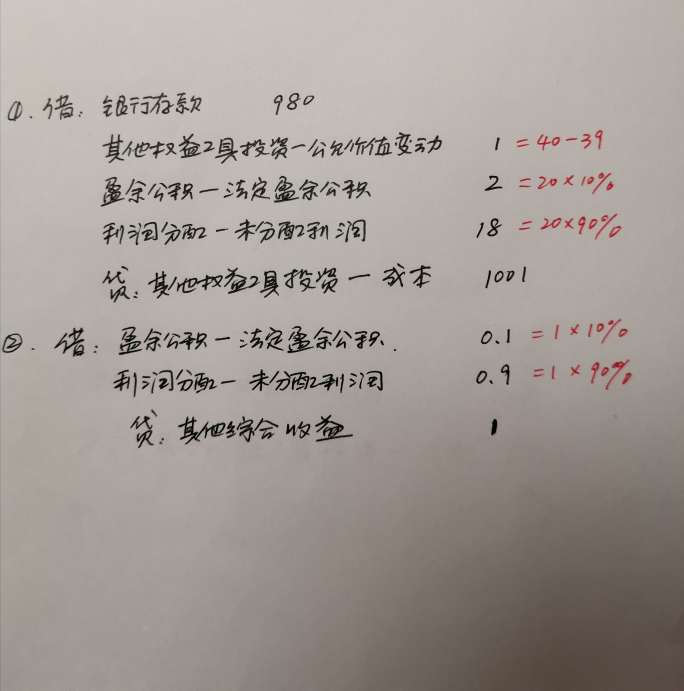 ①. 借：银行存款 980
其他权益工具投资一公允价值变动 1 = 40-39
盈余公积一法定盈余公积 2 = 20×10%
利润分配一未分配利润 18 = 20×90%
贷：其他权益工具投资一成本 1001
②. 借：盈余公积一法定盈余公积. 0.1 = 1×10%
利润分配一未分配利润 0.9 = 1×90%
贷：其他综合收益 1